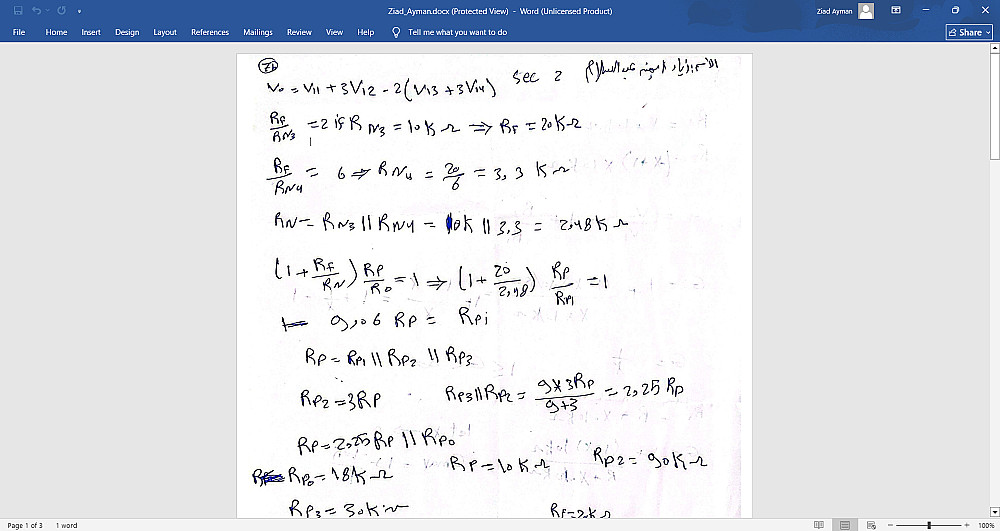 Ziad_Ayman.docx (Protected View) - Word (Unlicensed Product)
Ziad Ayman
File Home Insert Design Layout References Mailings Review View Help Tell me what you want to do Share
Sec 2
V₀ = V11 + 3V12 - 2(V13 + 3V14)
RF/RN3 = 2 if RN3 = 10KΩ ⇒ RF = 20KΩ
RF/RN4 = 6 ⇒ RN4 = 20/6 = 3,3 KΩ
RN = RN3 || RN4 = 10K || 3,3 = 2,48KΩ
(1 + RF/RN) RP/R0 = 1 ⇒ (1 + 20/2,48) RP/RP1 = 1
9,06 RP = RPi
RP = RP1 || RP2 || RP3
RP2 = 3RP RP3||RP2 = 9×3RP/9+3 = 2,25 RP
RP = 2,25RP || RP0
RP0 = 18KΩ RP = 10KΩ RP2 = 90KΩ
RP3 = 30KΩ RF=2KΩ
Page 1 of 3 1 word 100%